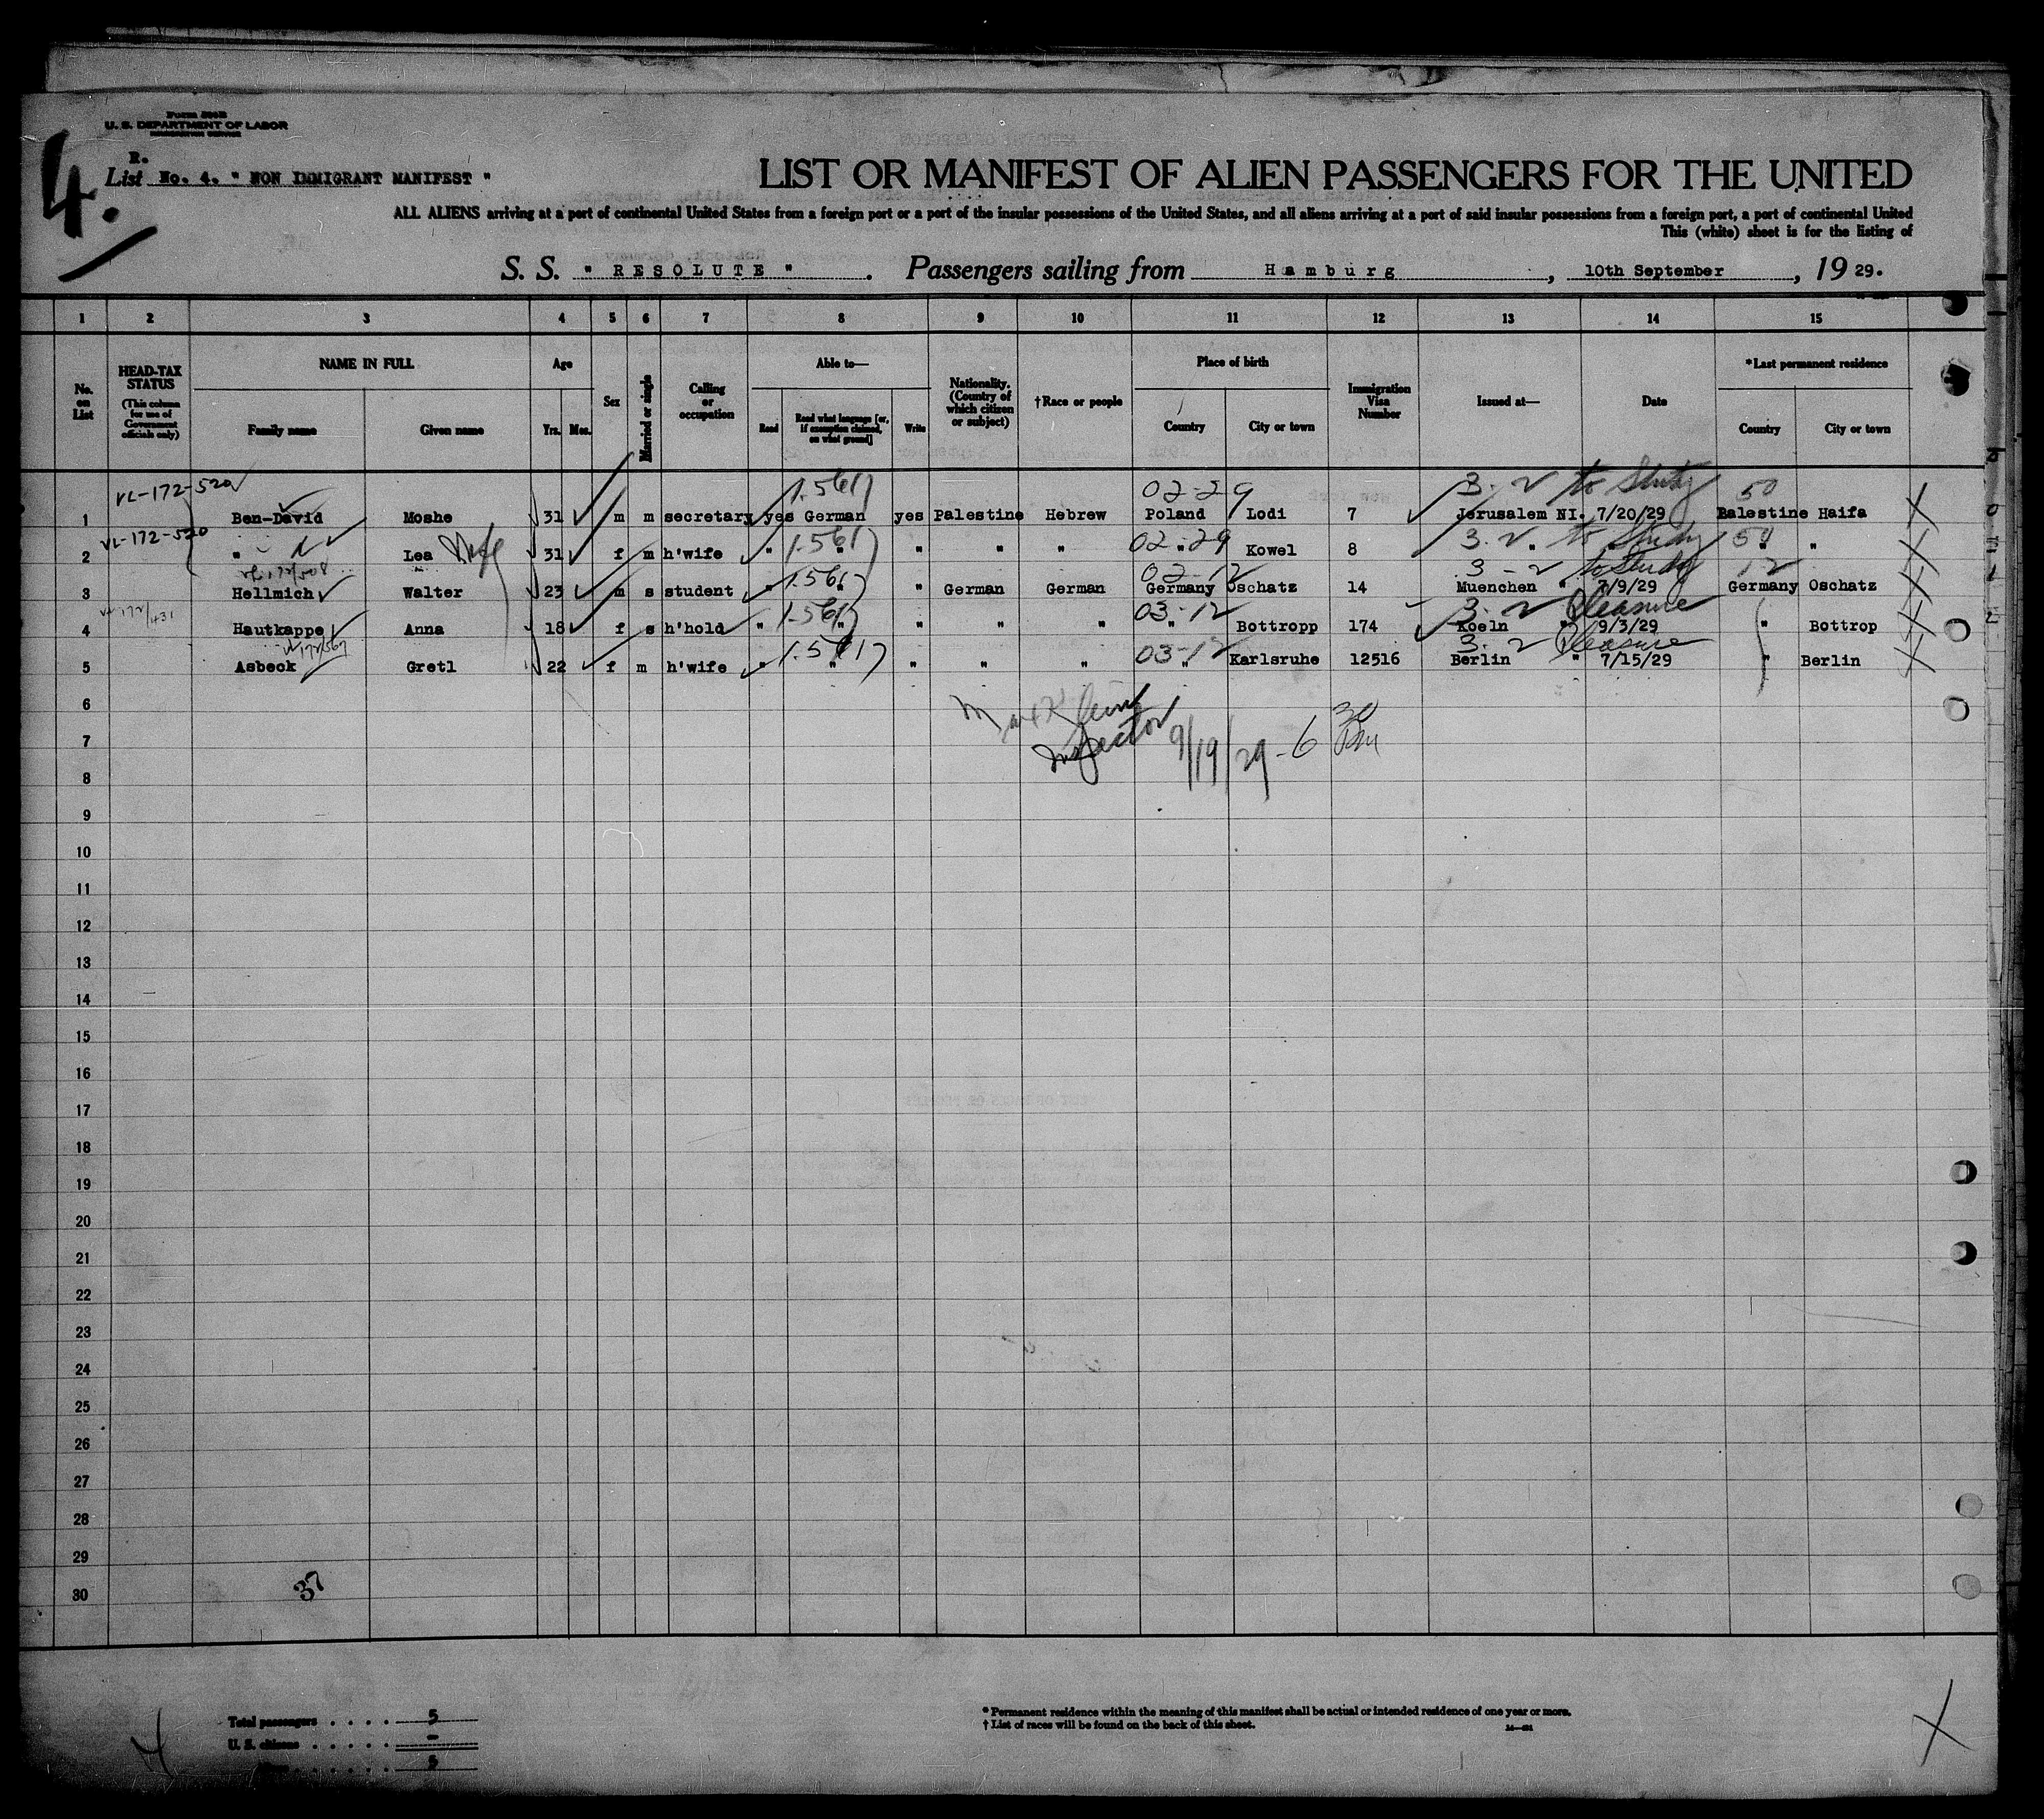 Form 500B
U. S. DEPARTMENT OF LABOR
IMMIGRATION SERVICE
4.
R.
List No. 4. " NON IMMIGRANT MANIFEST "
LIST OR MANIFEST OF ALIEN PASSENGERS FOR THE UNITED
ALL ALIENS arriving at a port of continental United States from a foreign port or a port of the insular possessions of the United States, and all aliens arriving at a port of said insular possessions from a foreign port, a port of continental United
This (white) sheet is for the listing of
S. S. " RESOLUTE " . Passengers sailing from Hamburg , 10th September , 19 29.
1 2 3 4 5 6 7 8 9 10 11 12 13 14 15
No. on List
HEAD-TAX STATUS (This column for use of Government officials only)
NAME IN FULL
Family name Given name
Age
Yrs. Mos.
Sex
Married or single
Calling or occupation
Able to—
Read Read what language [or, if exemption claimed, on what ground] Write
Nationality. (Country of which citizen or subject)
†Race or people
Place of birth
Country City or town
Immigration Visa Number
Issued at—
Date
*Last permanent residence
Country City or town
VL-172-520 1.561 02-29 3.2 to Study 50
1 Ben-David Moshe 31 m m secretary yes German yes Palestine Hebrew Poland Lodi 7 Jerusalem NI. 7/20/29 Palestine Haifa
VL-172-520 1.561 02-29 3.2 to Study 50
2 " Lea Wife 31 f m h'wife " " " " " " Kowel 8 " " " "
1.561 02-12 3-2 to Study 12
3 Hellmich Walter 23 m s student " " " German German Germany Oschatz 14 Muenchen " 7/9/29 Germany Oschatz
172/431 1.561 03-12 3.2 Pleasure
4 Hautkappe Anna 18 f s h'hold " " " " " " Bottropp 174 Koeln " 9/3/29 " Bottrop
172/567 1.561 03-12 3.2 Pleasure
5 Asbeck Gretl 22 f m h'wife " " " " " " Karlsruhe 12516 Berlin " 7/15/29 " Berlin
6
Inspector 9/19/29 - 6 30 PM
7
8
9
10
11
12
13
14
15
16
17
18
19
20
21
22
23
24
25
26
27
28
29
30
37
Total passengers . . . . 5
U. S. citizens . . . . . -
5
* Permanent residence within the meaning of this manifest shall be actual or intended residence of one year or more.
† List of races will be found on the back of this sheet.